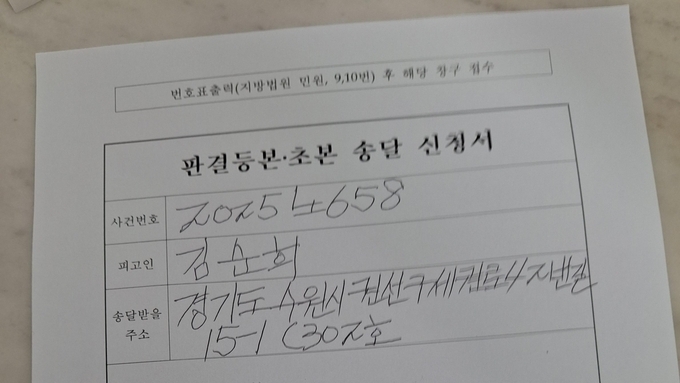 번호표출력(지방법원 민원, 9,10번) 후 해당 창구 접수
판결등본·초본 송달 신청서
사건번호 2025노658
피고인 김순희
송달받을 경기도 수원시 권선구 세권로
주소 15-1 (302호